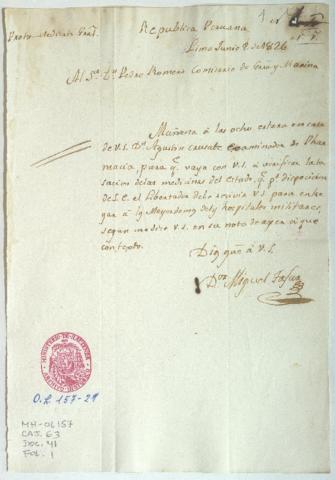 Republica Peruana
Proto-Medicato Genl.
Lima Junio 2 de 1826
Al Sr. Dn. Pedro Romero Comisario de Grra y Marina
Mañana á las ocho estara en casa
de V.S. Dn. Agustin Cruzate examinador de Phar-
macia, para q. vaya con V.S. á verificar la ta-
sacion de las medicinas del Estado, q. pr. disposicion
de S.E. el Libertador debe recivir V.S. para entre-
gar á los Mayordomos de los hospitales militares,
segun me dice V.S. en su nota de ayer á que
contexto.
Dios gue. á V.S.
Dor. Miguel Tafur
MINISTERIO DE HACIENDA
O.L. 157-29
MH-OL157
CAJ. 63
DOC. 41
FOL. 1